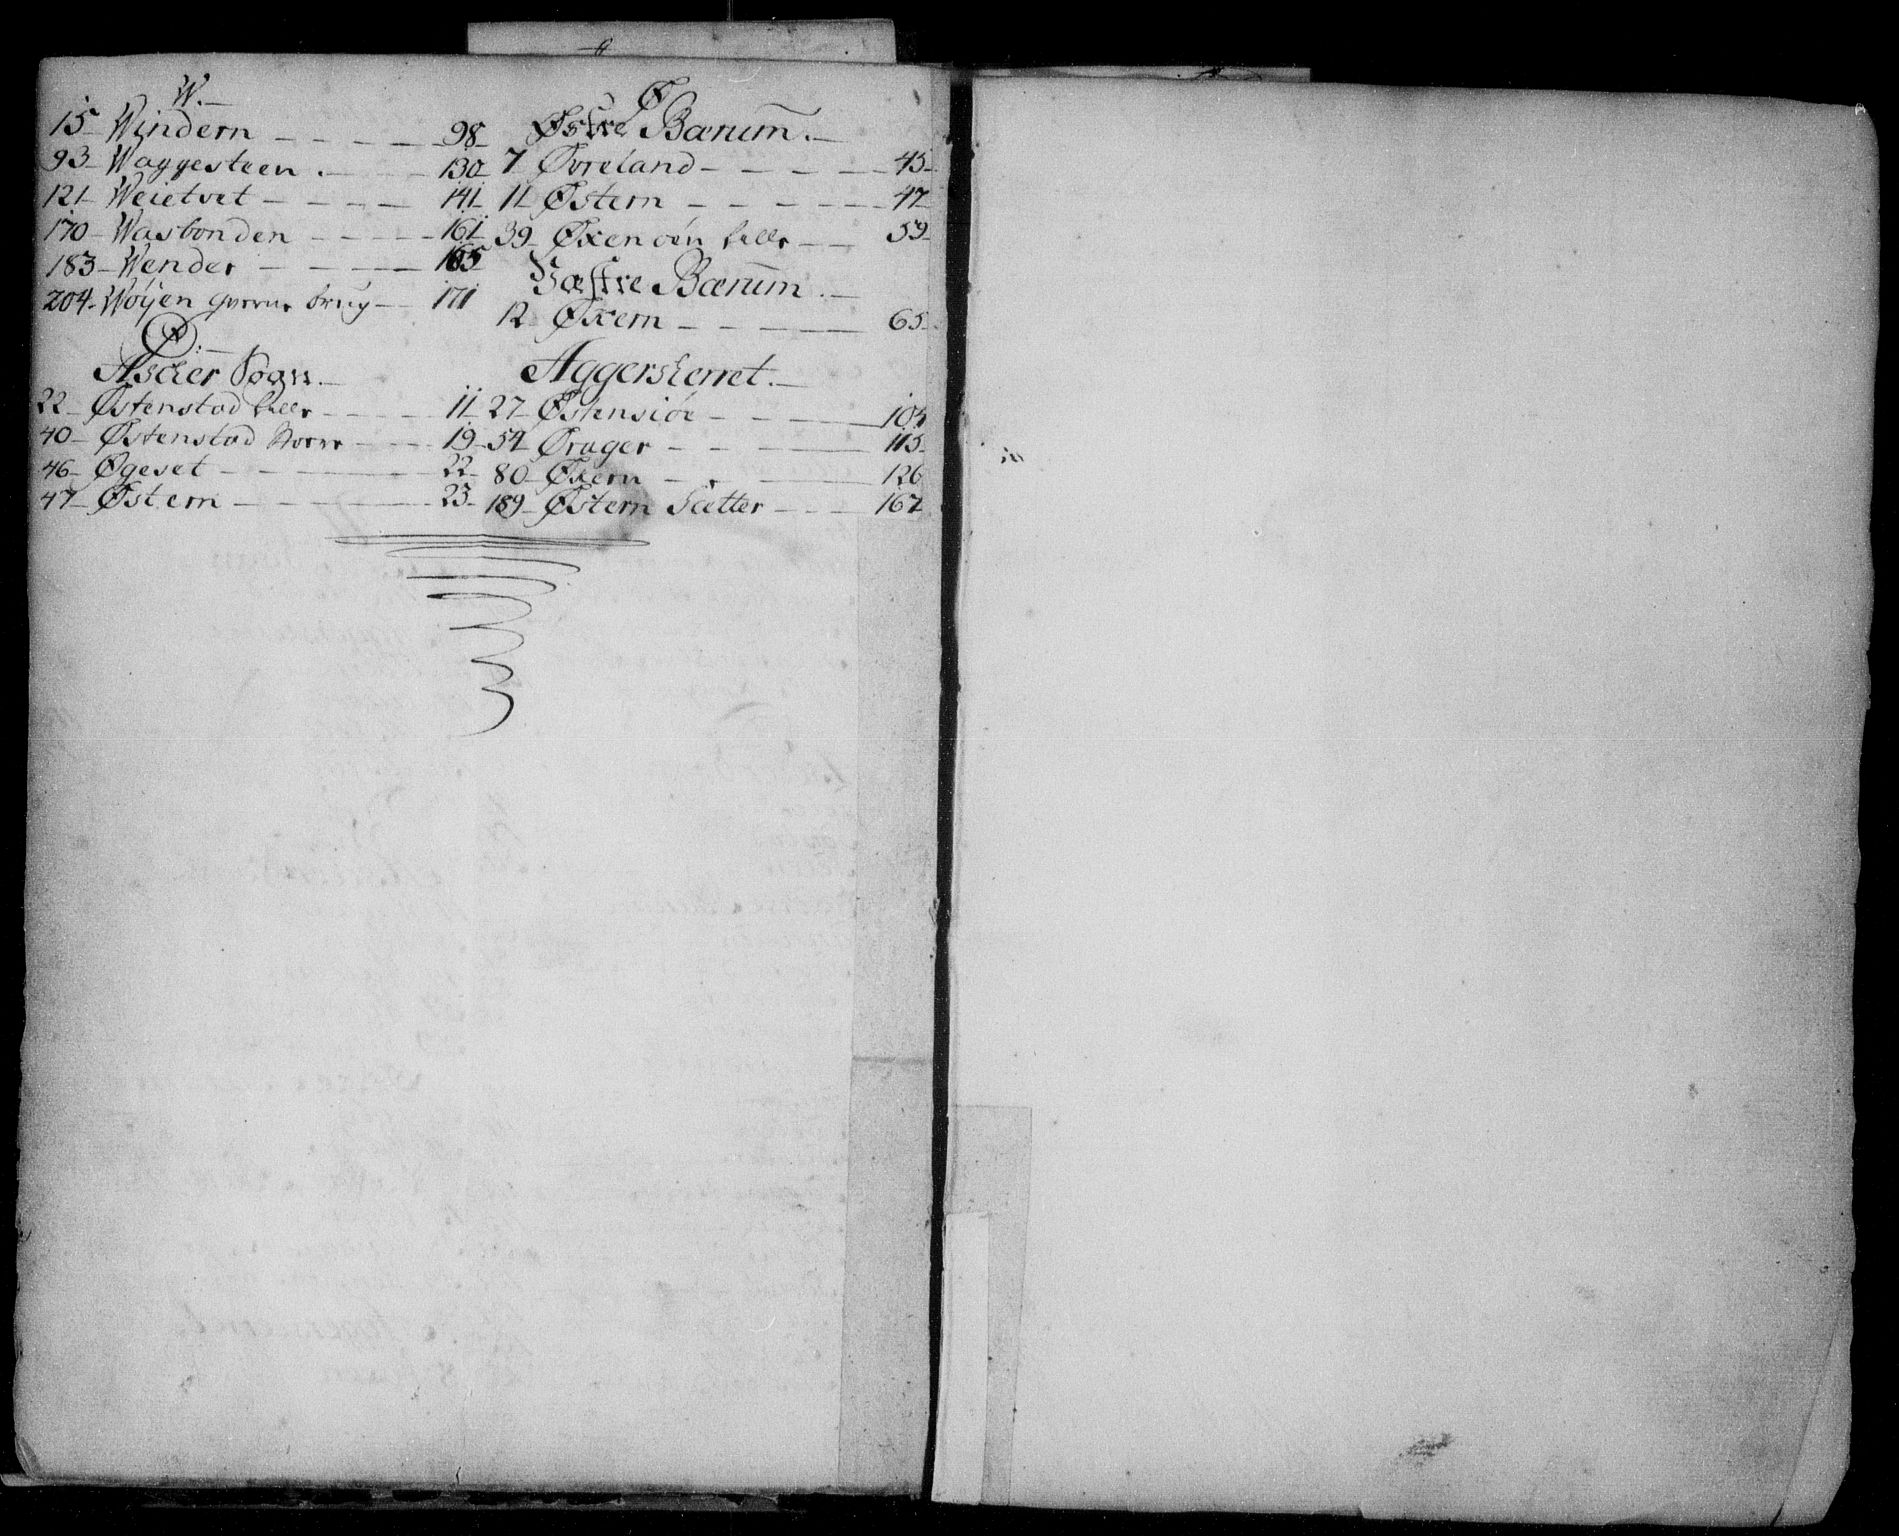 W.
15 Windern 98
93 Waggesteen 130
121 Weietvet 141
170 Wasbonden 161
183 Wender 165
204 Wøyen brug 171
Ø
Ascher Sogn.
22 Østenstad lille 11
40 Østenstad Store 19
46 Øgeset 22
47 Østern 23
Ø
Østre Bærum.
7 Øvreland 45
11 Østern 47
39 Øxenøen lille 59
Væstre Bærum.
12 Øxern 65
Aggersherret.
27 Østensiøe 104
54 Ørager 115
80 Øxern 126
189 Østern Sætter 167